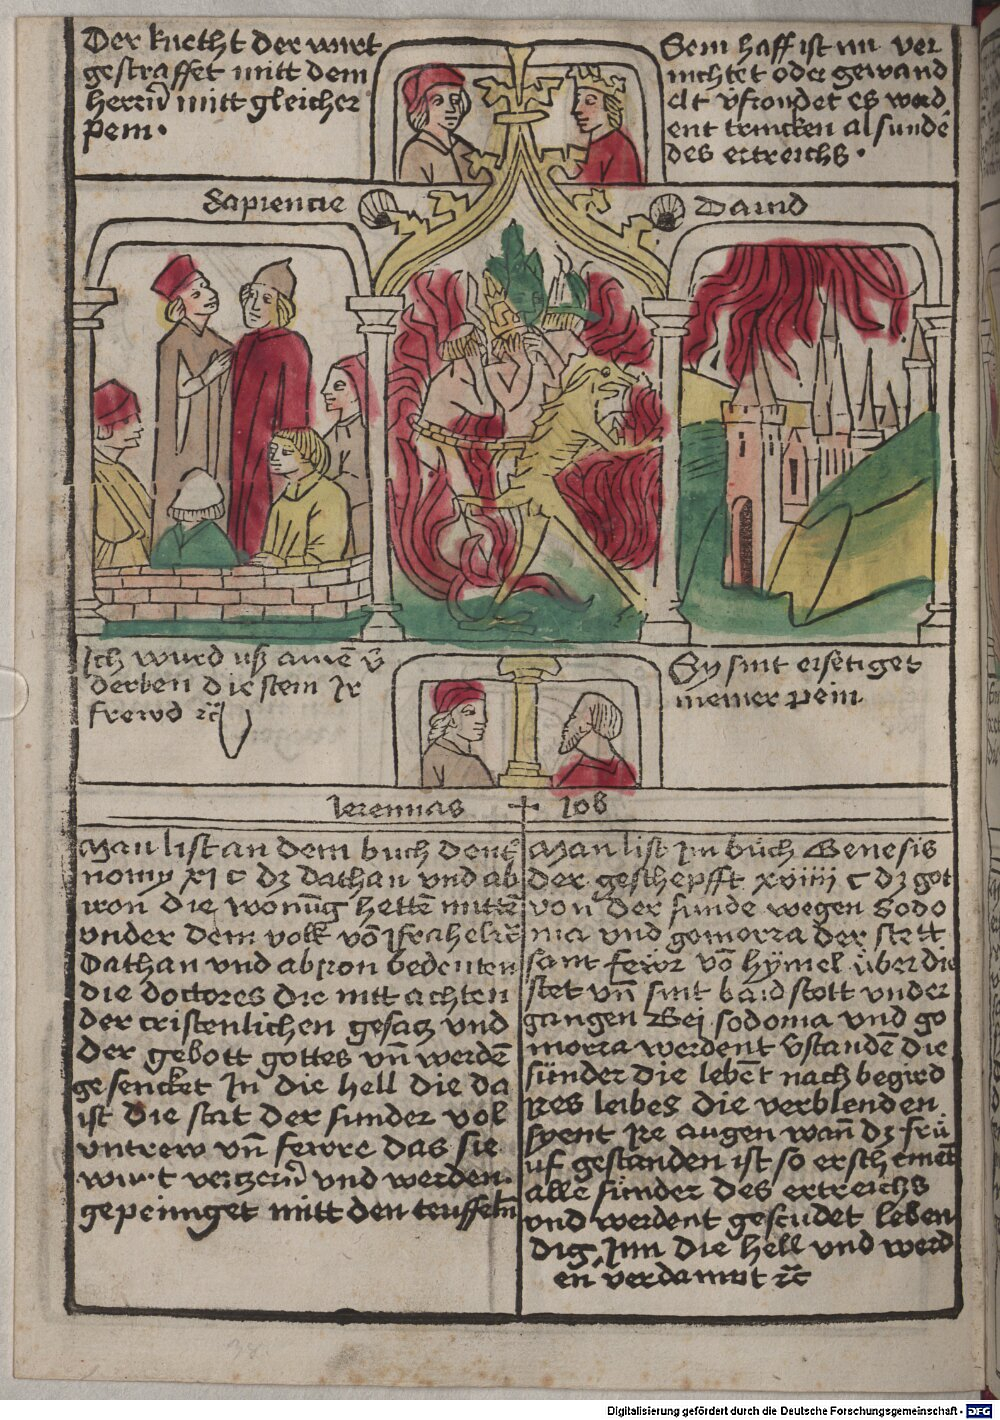 Der knecht der wirt
gestraffet mitt dem
herrn̄ mitt gleicher
pein.
Sein haff ist nit ver
nichtet oder gewand
elt es werd
ent trincken al sundē
des ertreichs.
Sapiencie
Dauid
Ich wurd uß
derben die stem Ir
frewd ꝛc̄
Sy sint erseтiget
meiner pein.
Jeremias + Job
Man list an dem buch deut̄
nomy xi c dz dathan und ab
iron die wonūg hettē mittē
under dem volk vō Israhel ꝛc̄
Dathan und abyron bedeuten
die doctores die nitt achten
der cristenlichen gesatz und
der gebott gottes vn̄ werdē
gesencket In die hell die da
ist die stat der sunder vol
untrew vn̄ fewre das sie
wirt verzern̄ und werden
gepeiniget mitt den teuffeln̄
Man list Im bůch Genesis
der geschepfft xviiii c dz got
von der sunde wegen Sodo
ma und gomorra der stett
sant fewr vō hÿmel über die
stet vn̄ sint baid stett under
gangen Bei sodoma und go
morra werdent v̄standē die
sünder die lebēt nach begird
Ires leibes die verblenden
syent Ire augen wan̄ dz
uf gestanden ist so erschēinēt
alle sünder des ertreichs
und werdent gesendet leben
dig Inn die hell und werd
en verdampt ꝛc̄
Digitalisierung gefördert durch die Deutsche Forschungsgemeinschaft - DFG